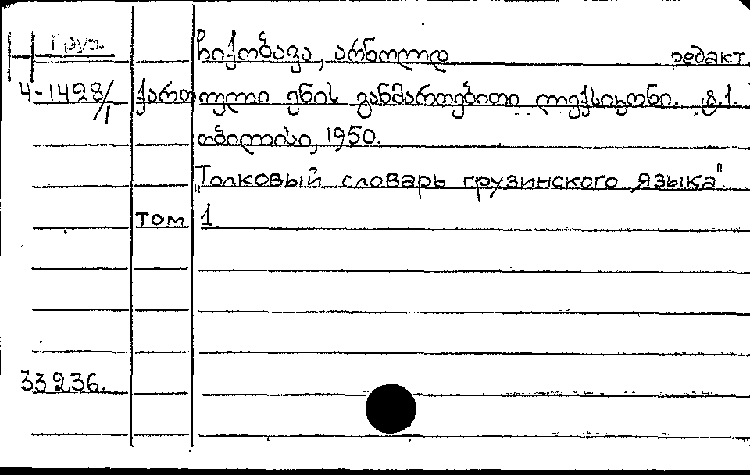 Груз. ჩიქობავა, არნოლდ редакт.
4-1428/1 ქართული ენის განმარტებითი ლექსიკონი. ტ.1.
თბილისი, 1950.
„Толковый словарь грузинского языка".
том 1
33236.